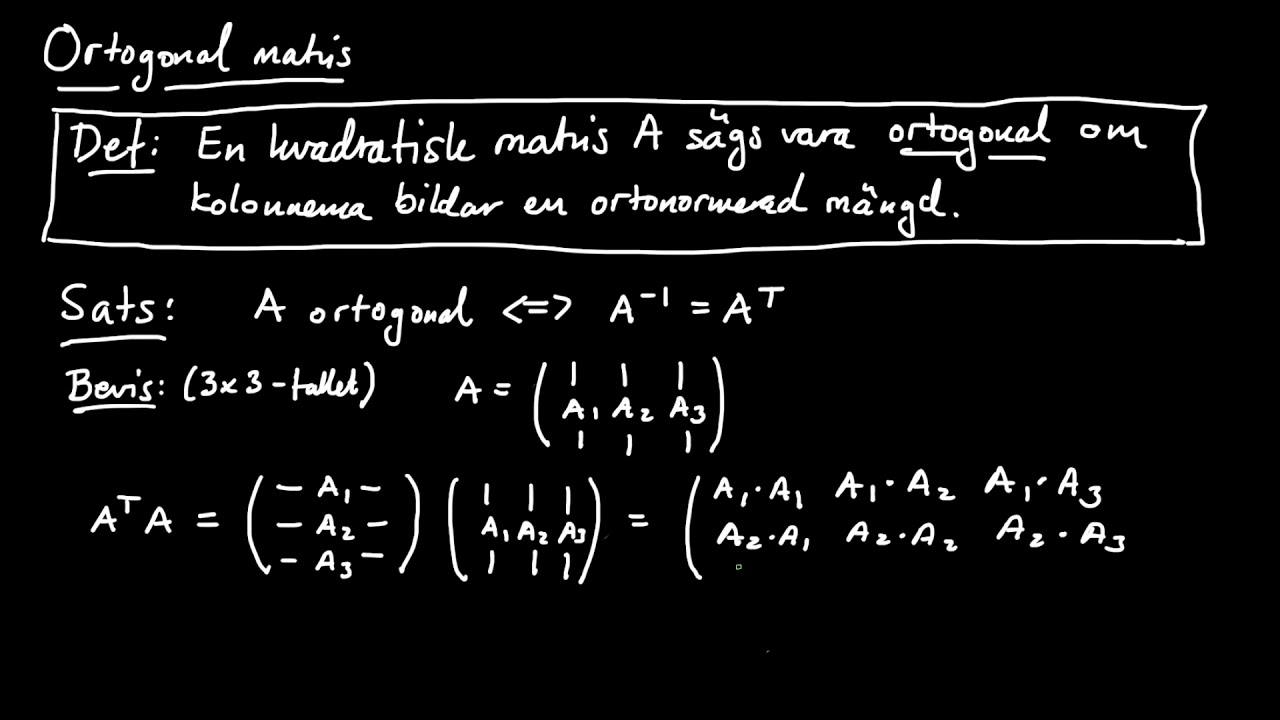 Ortogonal matris
Def: En kvadratisk matris A sägs vara ortogonal om
kolonnerna bildar en ortonormerad mängd.
Sats: A ortogonal <=> A⁻¹ = Aᵀ
Bevis: (3x3-fallet) A = ( | | | 
A₁ A₂ A₃
| | | )
AᵀA = ( – A₁ – ( | | | = ( A₁·A₁ A₁·A₂ A₁·A₃
– A₂ – A₁ A₂ A₃ A₂·A₁ A₂·A₂ A₂·A₃
– A₃ – ) | | | )